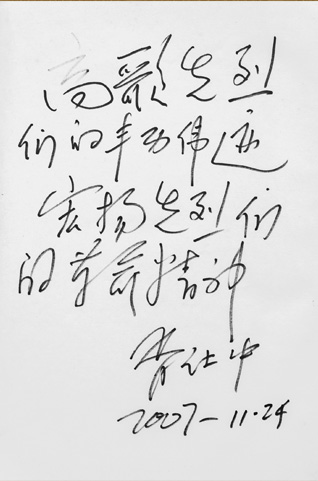 高歌先烈
们的丰功伟迹
宏扬先烈们
的革命精神
2007-11.24